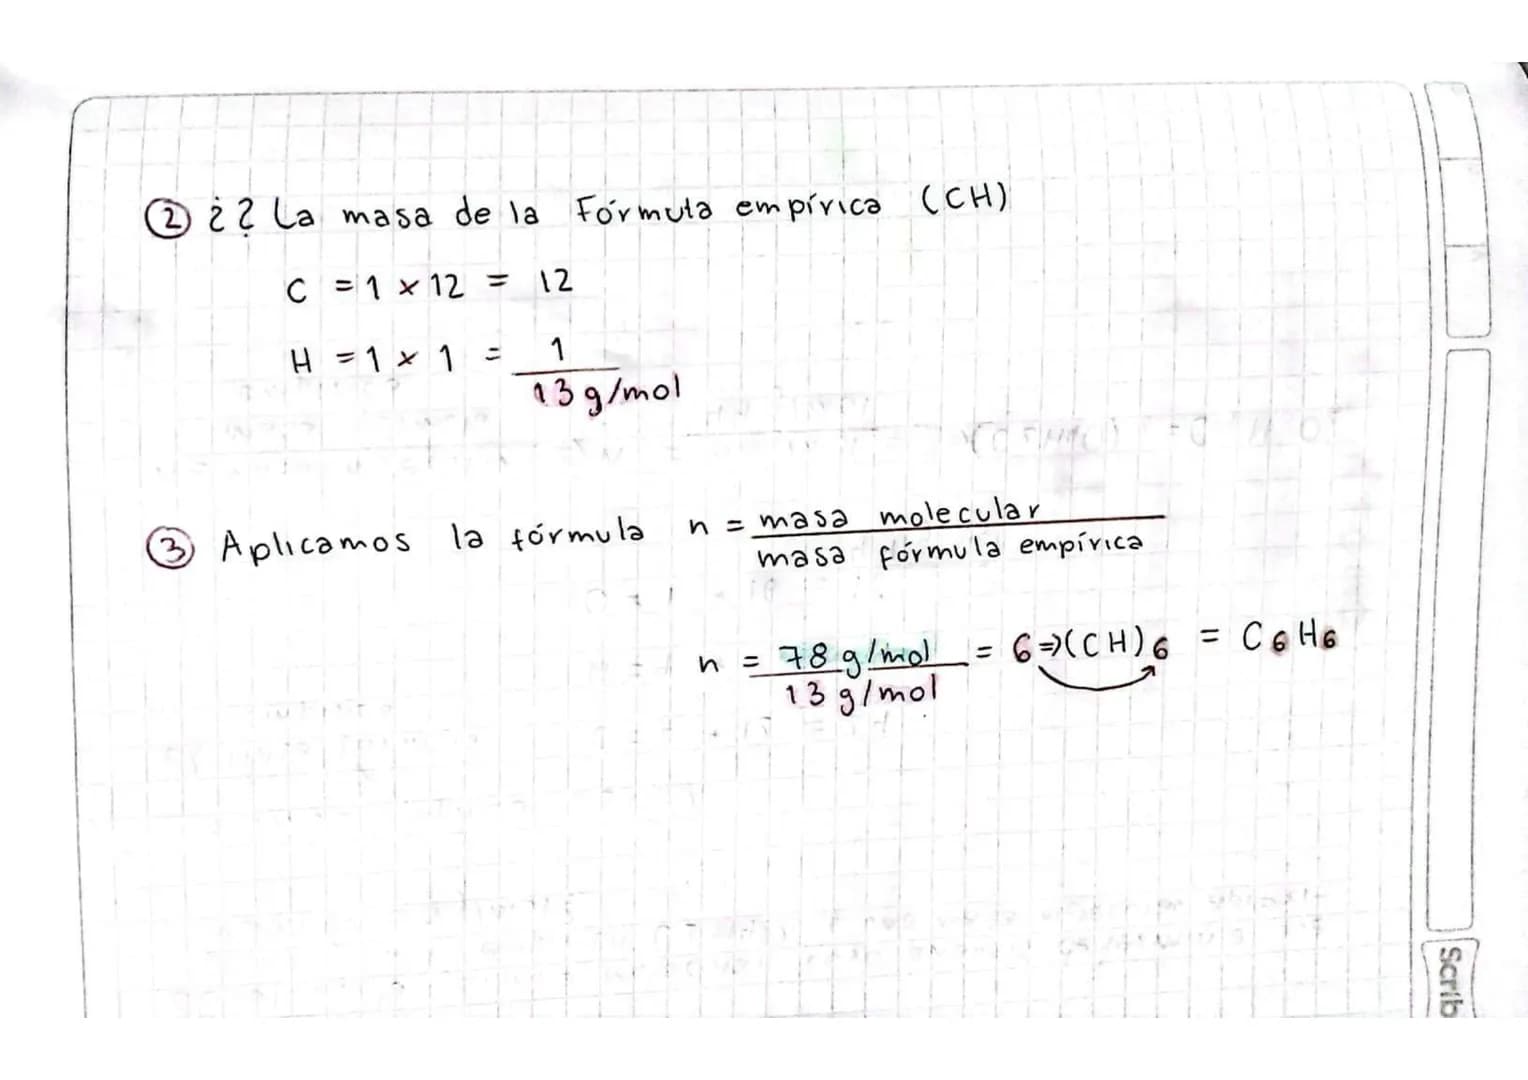 ② ¿? La masa de la Fórmula empírica (CH)
C = 1 x 12 = 12
H = 1 x 1 = 1
13 g/mol
③ Aplicamos la fórmula n = masa molecular
masa fórmula empírica
n = 78 g/mol = 6⇒(CH)6 = C6H6
13 g/mol
Scrib